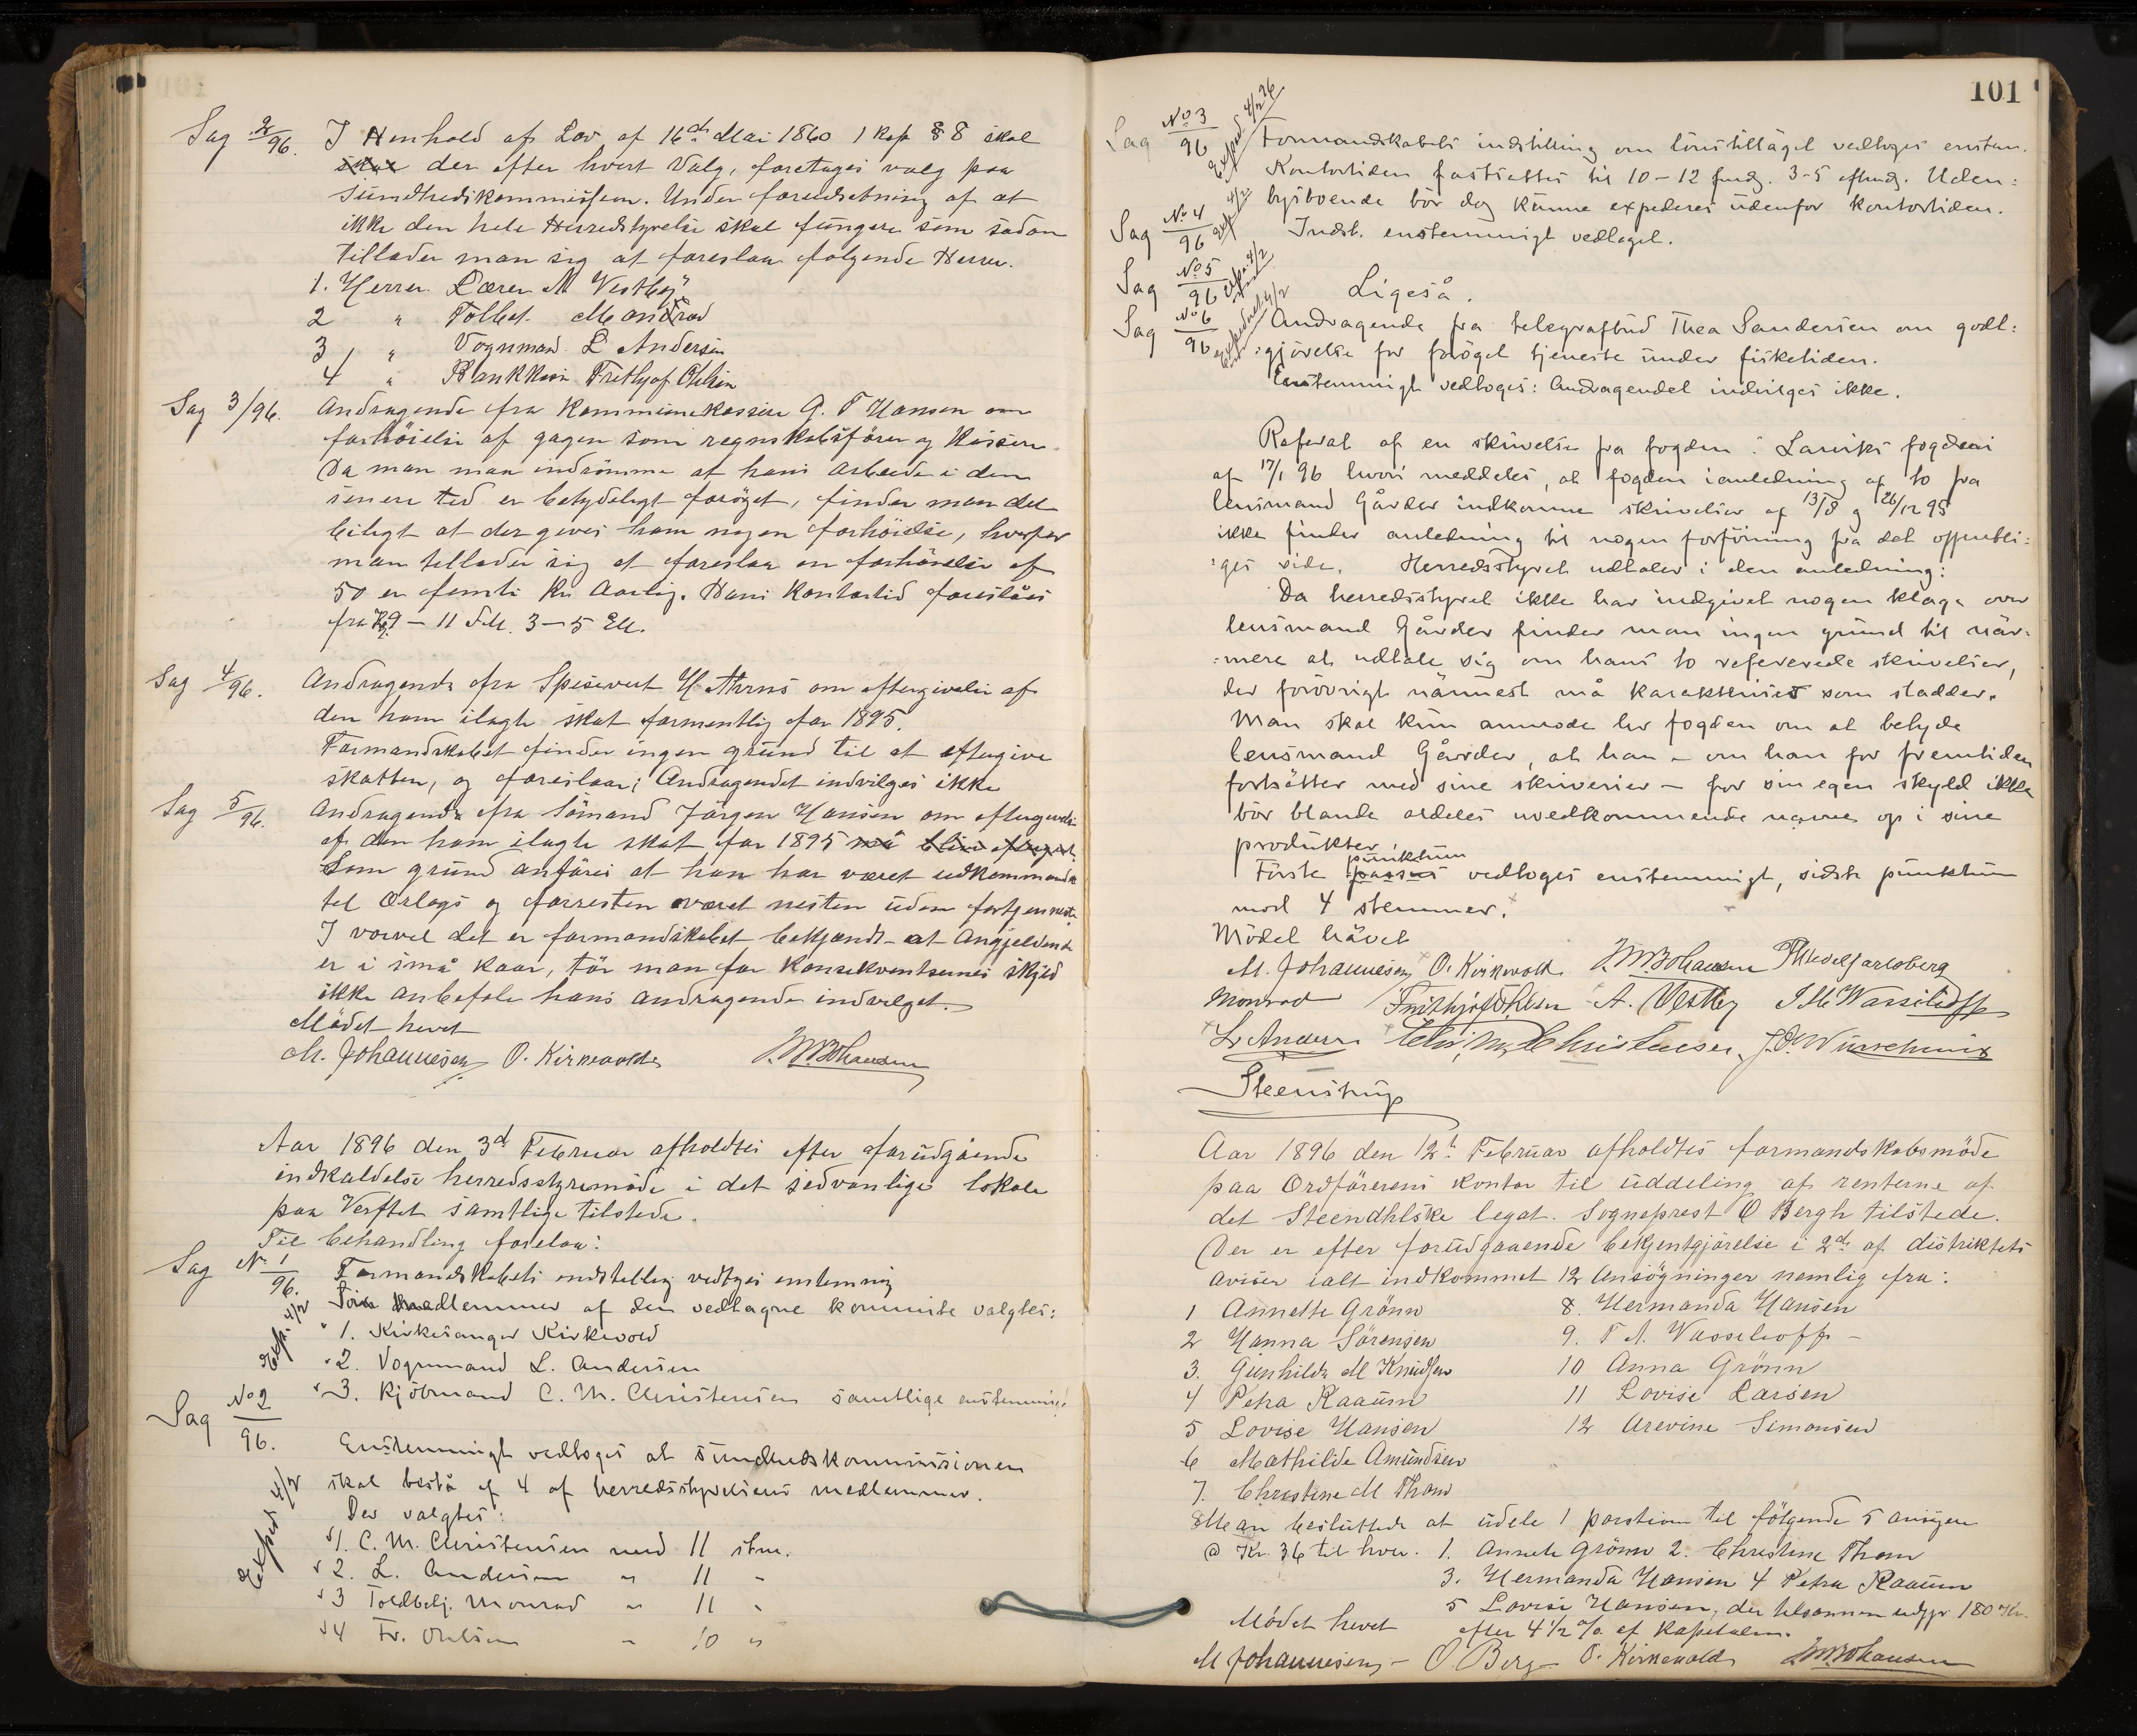 Sag 2/96. I Henhold af Lov af 16de Mai 1860 1 Kap § 8 skal
skal der efter hvert Valg, foretages valg paa
Sundhedskommission. Under forudsetning af at
ikke den hele Herredstyrelse skal fungere som sådan
tillader man sig at foreslaa følgende Herrer.
1. Herrer Lærer A Vestbÿ
2 " Tolbet. Monrad
3 " Vognmand L Andersen
4 " Frithjof Ohlsen
Sag 3/96. Andragende fra Kommunekasserer G. T Hansen om
forhöielse af gagen som regnskabsförer og Kasserer.
Da man maa indrömme at hans arbeide i den
senere tid er betydeligt foröget, finder man det
beligt at der gives ham nogen forhöielse, hvorfor
man tillader sig at foreslaa en forhöielse af
50 er femti Kr Aarlig. Hans Kontortid foreslåes
fra Kl 9 – 11 F.M. 3 – 5 EM.
Sag 4/96. Andragende fra Spisevert H. Ahrns om eftergivelse af
den ham ilagte skat formentlig for 1895.
Formandskabet finder ingen grund til at eftergive
skatten, og foreslaar; Andragendet indvilges ikke
Sag 5/96. Andragende fra Sömand Jörgen Hansen om eftergivelse
af den ham ilagte skat for 1895 må blive eftergivet.
Som grund anföres at han har været udkommanderet
til Orlogs og forresten været nesten uden fortjenneste.
I vorvel det er formandskabet bekjendt at Angjeldende
er i små kaar, tör man for Konsekventsernes skyld
ikke anbefale hans andragende indvilget.
Mödet hevet
M. Johannesen O. Kirkevold J. M. Johansen
Aar 1896 den 3d Februar afholdtes efter forudgående
indkaldelse herredsstyremöde i det sedvanlige lokale
paa Verftet samtlige tilstede.
Til behandling forelaa:
Sag No 1/96. Formandskabets indstilling vedtoges enstemmig
Som medlemmer af den vedtagne kommite valgtes:
Exp. 4/2
1. Kirkesanger Kirkevold
2. Vognmand L. Andersen
3. Kjöbmand C. M. Christensen samtlige enstemmigt
Sag No 2/96. Enstemmigt vedtoges at sundhedskommissionen
skal bestå af 4 af herredsstyrelsens medlemmer.
Exped 4/2
Der valgtes:
1. C. M. Christensen med 11 stm.
2. L. Andersen " 11 "
3 Toldbetj. Monrad " 11 "
4 Fr. Ohlsen " 10 "
101
Sag No 3/96 Exped 4/2 96 Formandskabets indstilling om lönstillägget vedtoges enstem.
Kontortiden fastsattes til 10 – 12 fmdg. 3-5 eftmdg. Uden:
bysboende bör dog kunne expederes udenfor kontortiden.
Sag No 4/96 Exp 4/2 Indst. enstemmigt vedtaget.
Sag No 5/96 Exp 4/2 Ligeså.
Sag No 6/96 Expederet 4/2 Andragende fra telegrafbud Thea Sandersen om godt:
:gjörelse for foröget tjeneste under fisketiden.
Enstemmigt vedtoges: Andragendet indvilges ikke.
Referat af en skrivelse fra fogden i Larviks fogderi
af 17/1 96 hvori meddeles, at fogden i anledning af to fra
lensmand Gårder indkomne skrivelser af 13/8 og 26/12 95
ikke finder anledning til nogen forföining fra det offentli:
:ges side. Herredsstyret udtaler i den anledning:
Da herredsstyret ikke har indgivet nogen klage over
lensmand Gårder finder man ingen grund til när:
:mere at udtale sig om hans to refererede skrivelser,
der forövrigt nännest må karakteriseres som sladder.
Man skal kun anmode hr fogden om at betyde
lensmand Gårder, at han – om han for fremtiden
fortsätter med sine skriverier – for sin egen skyld ikke
bör blande aldeles uvedkommende navne op i sine
produkter!
Förste punktum passus vedtoges enstemmigt, sidste punktum
mod 4 stemmer.
Mödet hävet
M. Johannesen O. Kirkevold J. M. Johansen F. Wedel Jarlsberg
Monrad Frithjof Ohlsen A. Vestby J. M. Wassilioff
L. Andersen Chr. M. Christensen J. O. Wurschmidt
Steenstrup
Aar 1896 den 12te Februar afholdtes formandskabsmöde
paa Ordförerens kontor til uddeling af renterne af
det Steendhlske legat. Sogneprest O Bergh tilstede.
Der er efter forudgaaende bekjentgjörelse i 2de af distriktets
aviser ialt indkommet 12 Ansögninger nemlig fra:
1 Annette Grönn 8. Hermanda Hansen
2 Hanna Sörensen 9. T A. Wassilioff –
3. Gunhilda M Knudsen 10 Anna Grönn
4 Petra Raaum 11 Lovise Larsen
5 Lovise Hansen 12 Arevine Simonsen
6 Mathilde Amundsen
7. Christine M Thom
Man besluttede at udele 1 portion til fölgende 5 ansögere
@ Kr. 36 til hver. 1. Annete Grönn 2. Christine Thom
3. Hermanda Hansen 4 Petra Raaum
5 Lovise Hansen, der tilsammen udgjr 180 Kr.
Mödet hevet efter 4 1/2 % af Kapitalen.
M Johannesen – O. Berg O. Kirkevold J. M. Johansen